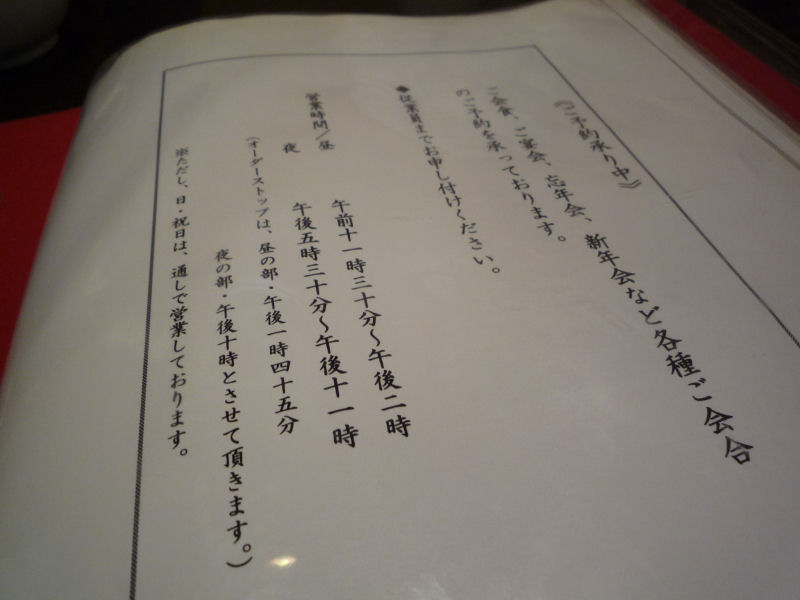 《ご予約承り中》
ご会食、ご宴会、忘年会、新年会など各種ご会合
のご予約を承っております。
◆従業員までお申し付けください。
営業時間/昼 午前十一時三十分～午後二時
夜 午後五時三十分～午後十一時
(オーダーストップは、昼の部・午後一時四十五分
夜の部・午後十時とさせて頂きます。)
※ただし、日・祝日は、通しで営業しております。